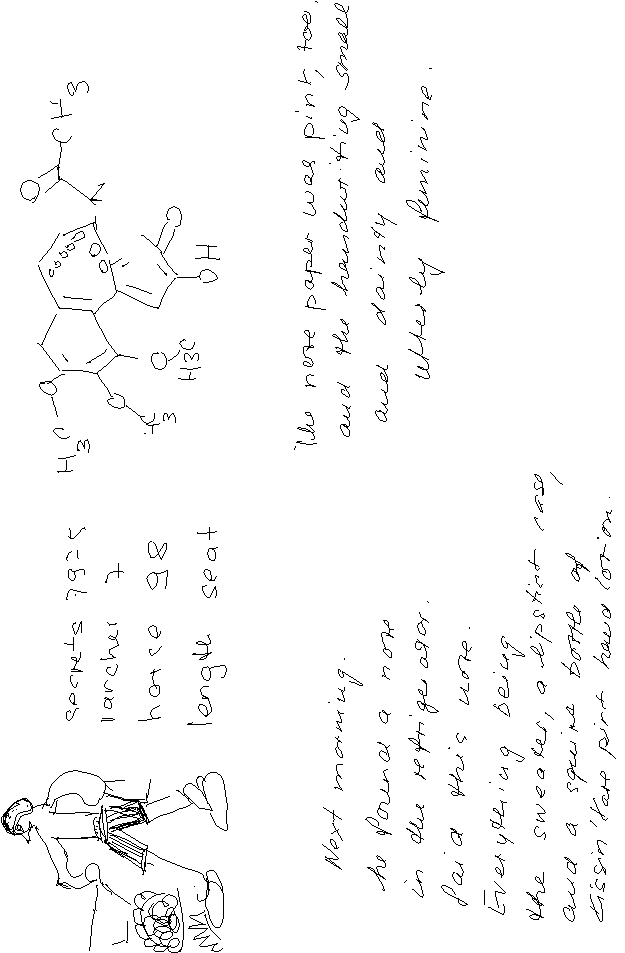 secrets 7925
larcher 7
horse 98
length seat
O
CH3
H
O
O
OH
O
H3C
O
H3C
O
CH3
Next morning.
he found a note
in the refrigerator.
Said this note.
Everything being
the sweater, a lipstick case,
and a squire bottle of
Kissin' Kare pink hand lotion.
The note paper was pink, too,
and the handwriting small
and dainty and
utterly feminine.